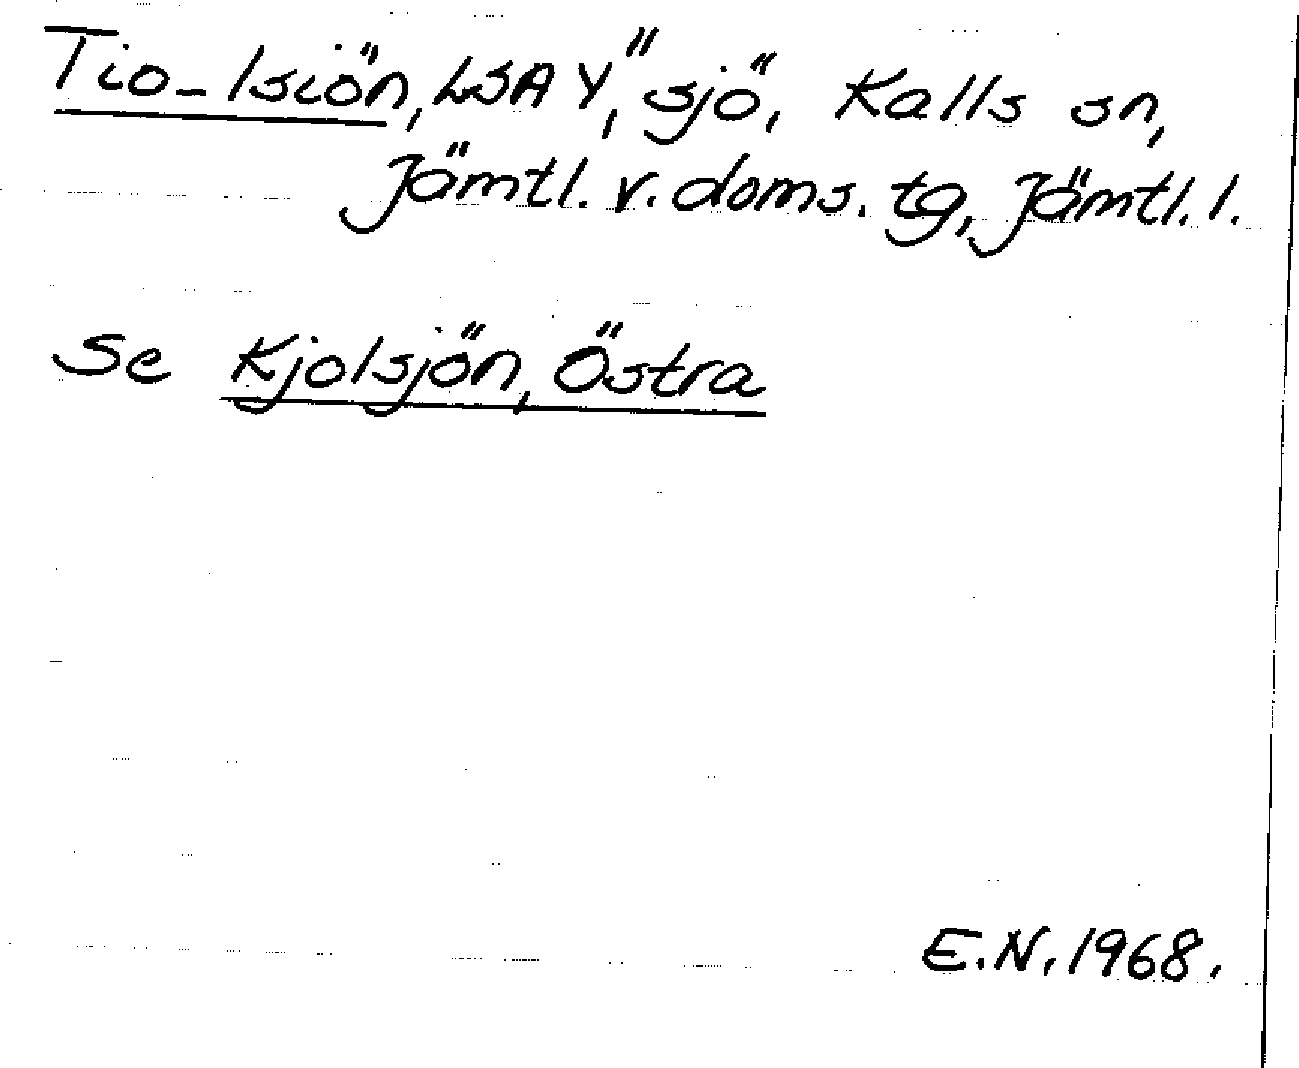 Tio-lsiön, LSA Y," sjö, Kalls sn,
Jämtl. v. doms. tg, Jämtl. l.
Se Kjolsjön, Östra
E.N. 1968.